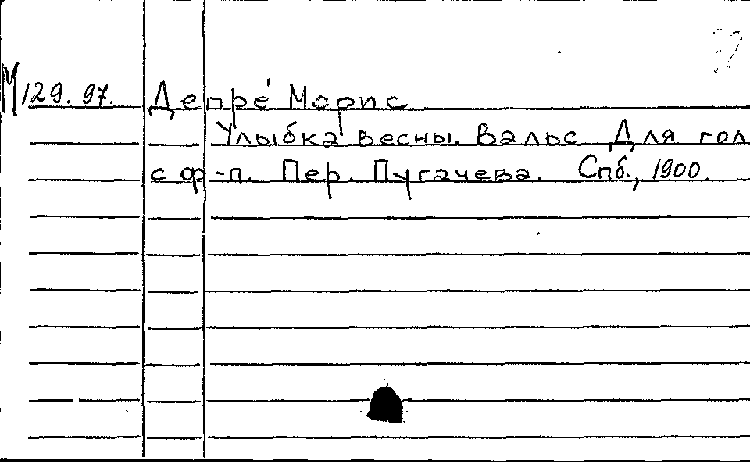 М 129.97. Депре Морис
Улыбка весны. Вальс. Для гол
с ф-п. Пер. Пугачева. Спб., 1900.